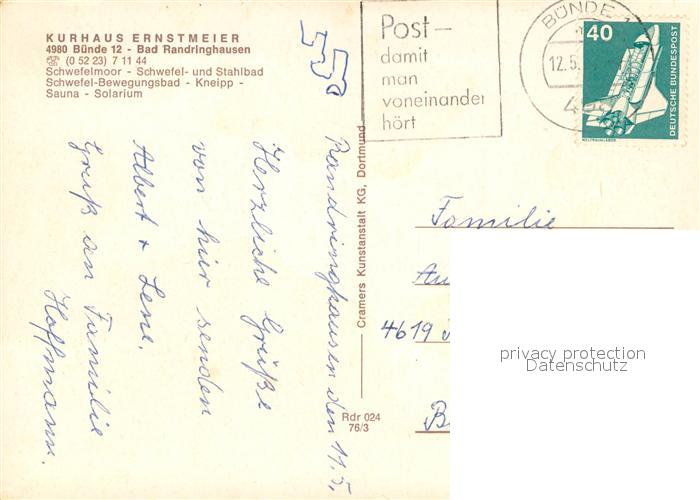 KURHAUS ERNSTMEIER
4980 Bünde 12 - Bad Randringhausen
☎ (0 52 23) 7 11 44
Schwefelmoor - Schwefel- und Stahlbad
Schwefel-Bewegungsbad - Kneipp -
Sauna - Solarium
Post-
damit
man
voneinander
hört
BÜNDE 1
12.5.
40
DEUTSCHE BUNDESPOST
WELTRAUMLABOR
Randringhausen den 11.5.
Herzliche Grüße
von hier senden
Albert + Lene.
Gruß an Familie
Hoffmann.
Cramers Kunstanstalt KG, Dortmund
Rdr 024
76/3
Familie
4619
privacy protection
Datenschutz